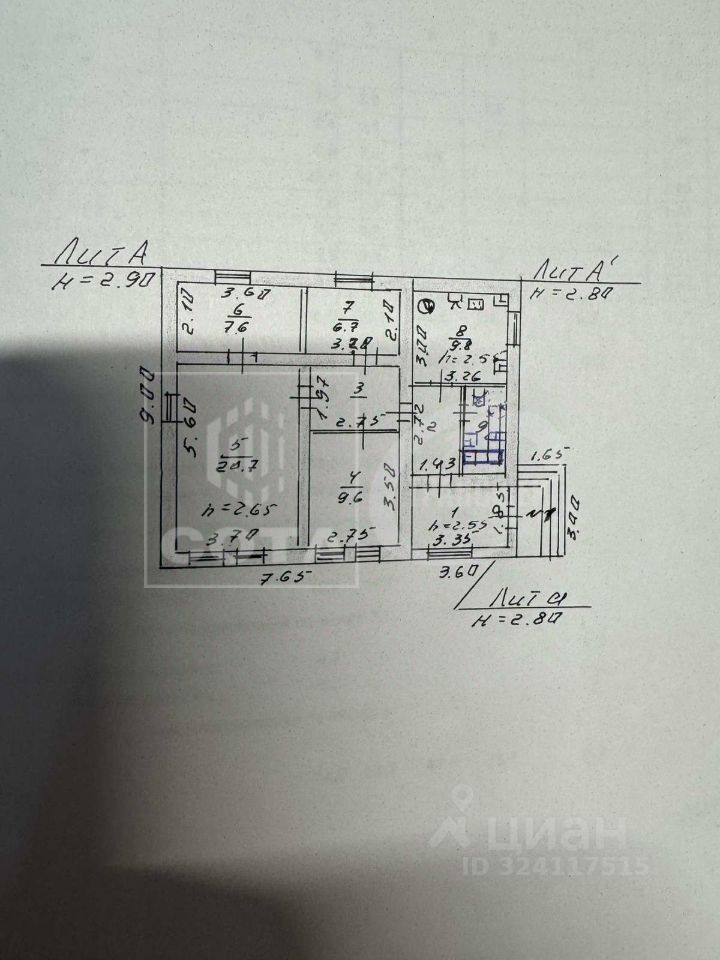 Лит А
H = 2.90
Лит А'
H = 2.80
3.60
2.10
6
7.6
7
6.7
3.20
2.10
3.00
8
9.8
h = 2.55
3.26
9.00
5.60
5
20.7
h = 2.65
3.70
1.97
3
2.75
4
9.6
3.50
2.75
2.72
2
1.43
9
1
h = 2.55
3.35
1.85
1.65
3.40
7.65
3.60
Лит а
H = 2.80
СОТА
циан
ID 324117515